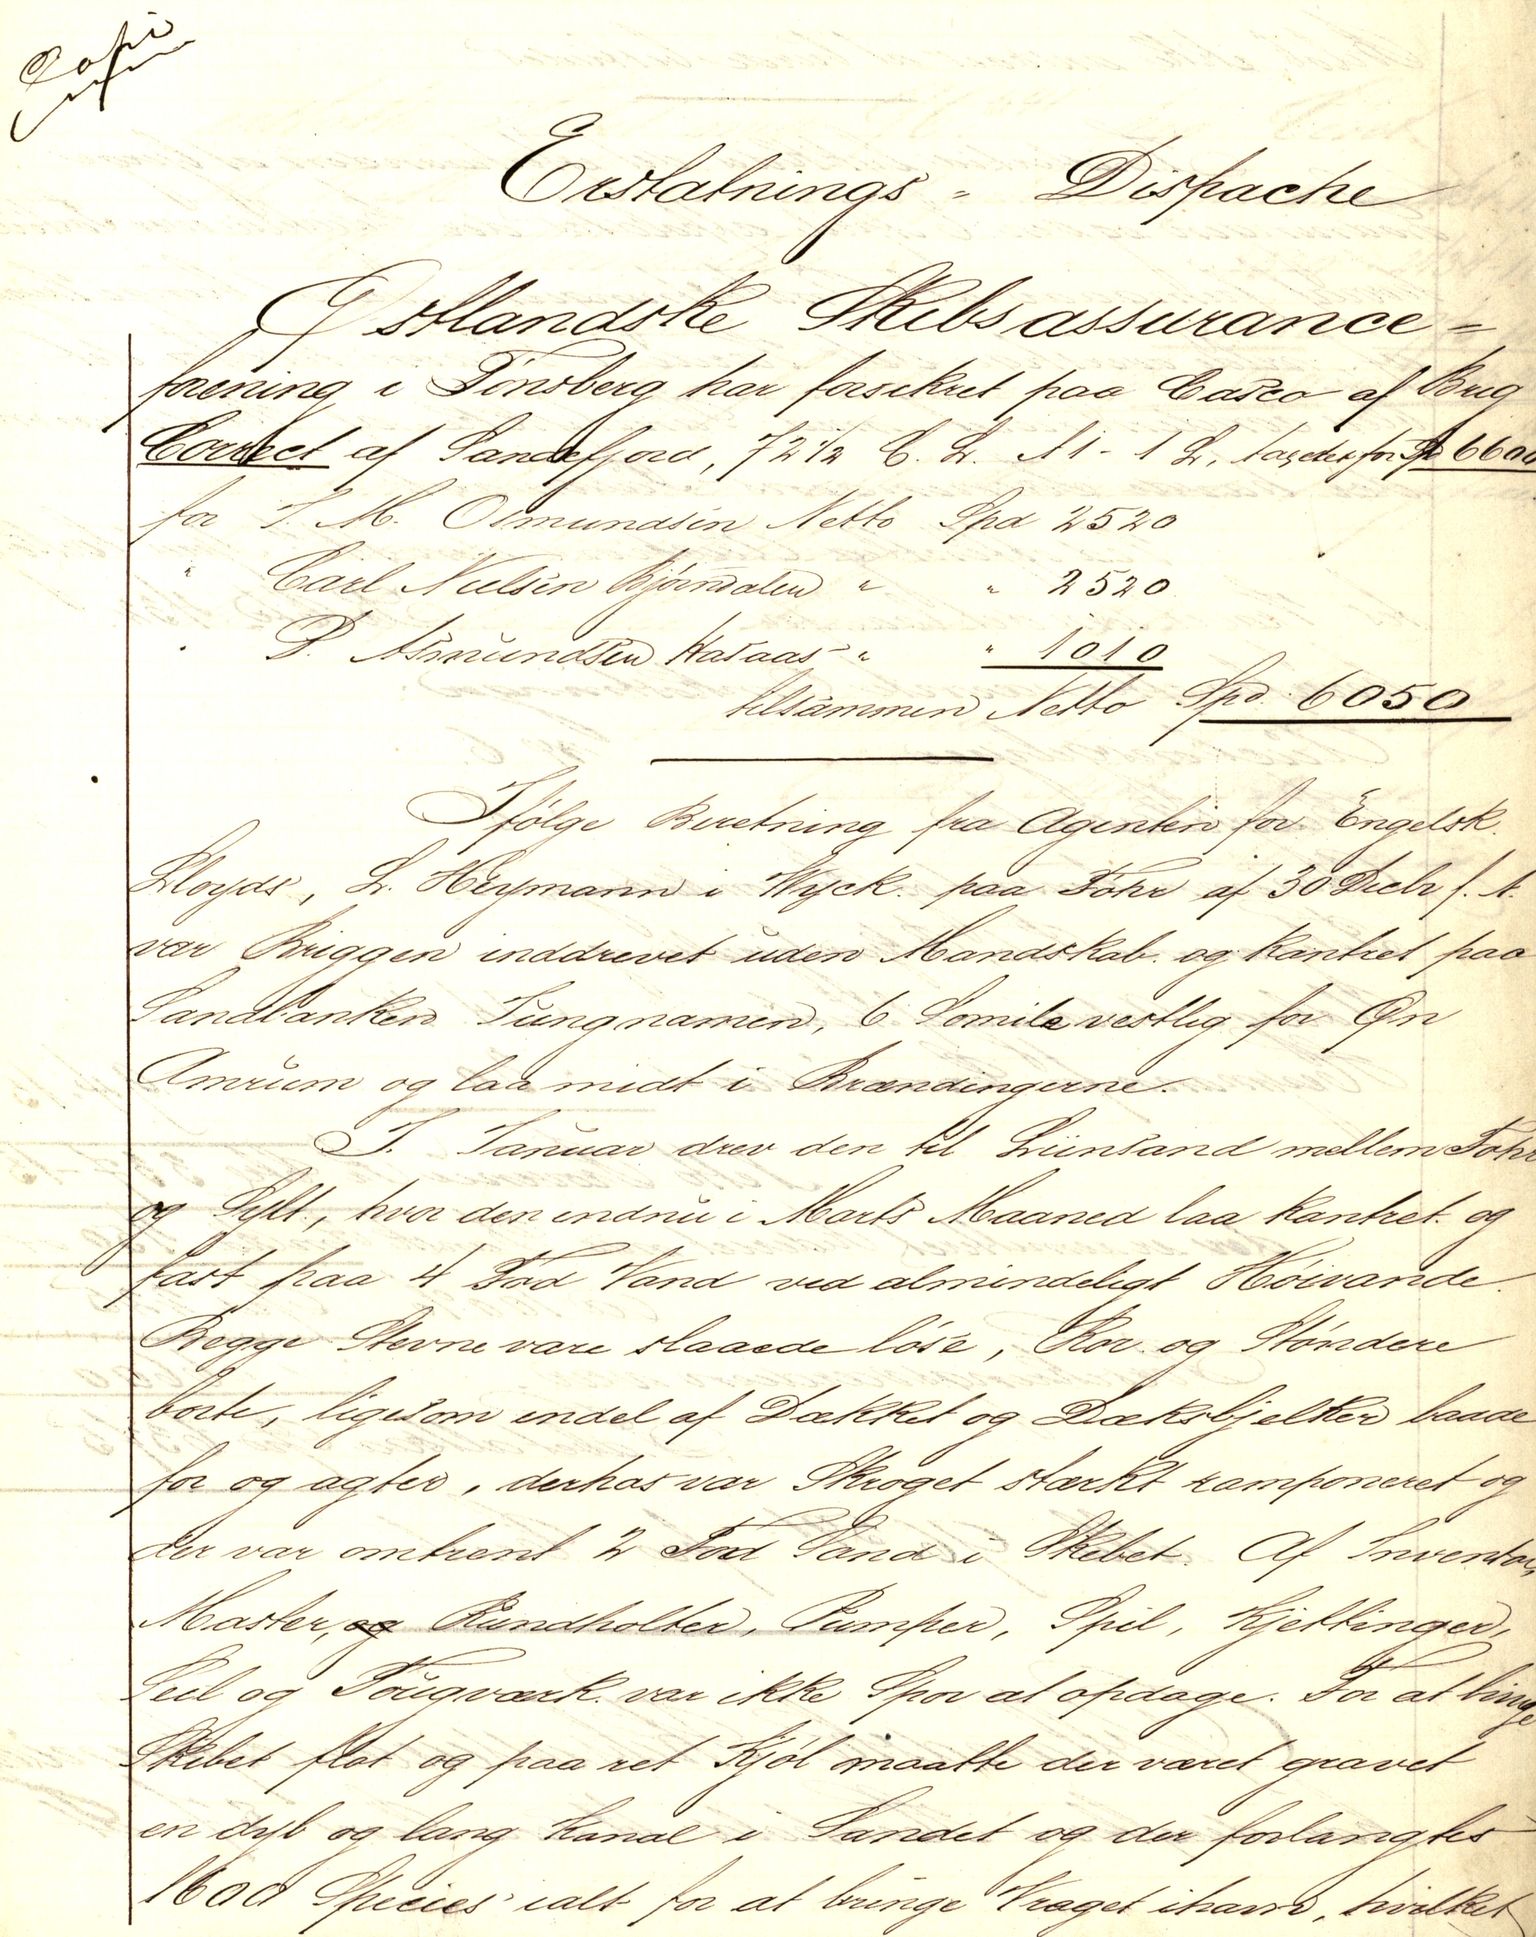 Copi
Erstatnings - Dispache
Østlandske Skibsassurance-
forening i Tönsberg har forsikret paa Casco af Brig
Correct af Sandefjord, 72½ C. L. A 1 - 1 L, taxeret for Spd 6600
for I. M. Osmundsen Netto Spd 2520
" Carl Nielsen Bjørndalen " " 2520
" P. Asmundsen Hasaas " " 1010
tilsammen Netto Spd. 6050
Ifølge Beretning fra Agenten for Engelsk
Lloyds, L. Heymann i Wyck paa Föhr af 30 Decbr f. A.
var Briggen inddrevet uden Mandskab og kantret paa
Sandbanken Jungnamen, 6 Sømile vestlig for Øn
Amrum og laa midt i Brændingerne.
I Januar drev den til Liinsand mellem Föhr
og Sylt, hvor den endnu i Marts Maaned laa kantret og
fast paa 4 Fod Vand ved almindeligt Höivande.
Begge Stevne vare slaaede löse, Ror og Støndere
borte, ligesom endel af Dækket og Dæksbjelker baade
for og agter, derhos var Skroget stærkt ramponeret og
der var omtrent 2 Fod Sand i Skibet. Af Inventar,
Master, og Rundholter, Pumper, Spil, Kjettinger,
Seil og Tougværk var ikke Spor at opdage. For at bringe
Skibet flot og paa ret Kjøl maatte der været gravet
en dyb og lang Kanal i Sandet og der forlangtes
1600 Species ialt for at bringe Vraget ihavn, hvilket